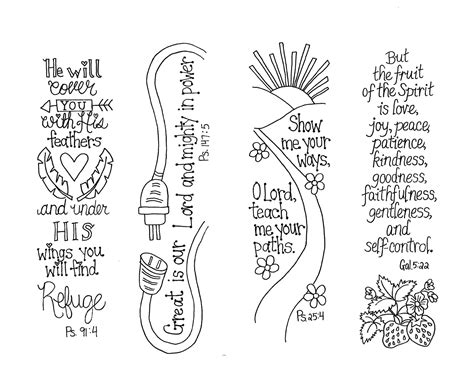 He will
cover
YOU
with His
feathers
and under
HIS
wings you
will find
Refuge
Ps. 91:4
Great is our Lord and mighty in power
Ps. 147:5
Show
me your
ways,
O Lord,
teach
me your
paths.
Ps. 25:4
But
the fruit
of the Spirit
is love,
joy, peace,
patience,
kindness,
goodness,
faithfulness,
gentleness,
and
self-control.
Gal. 5:22